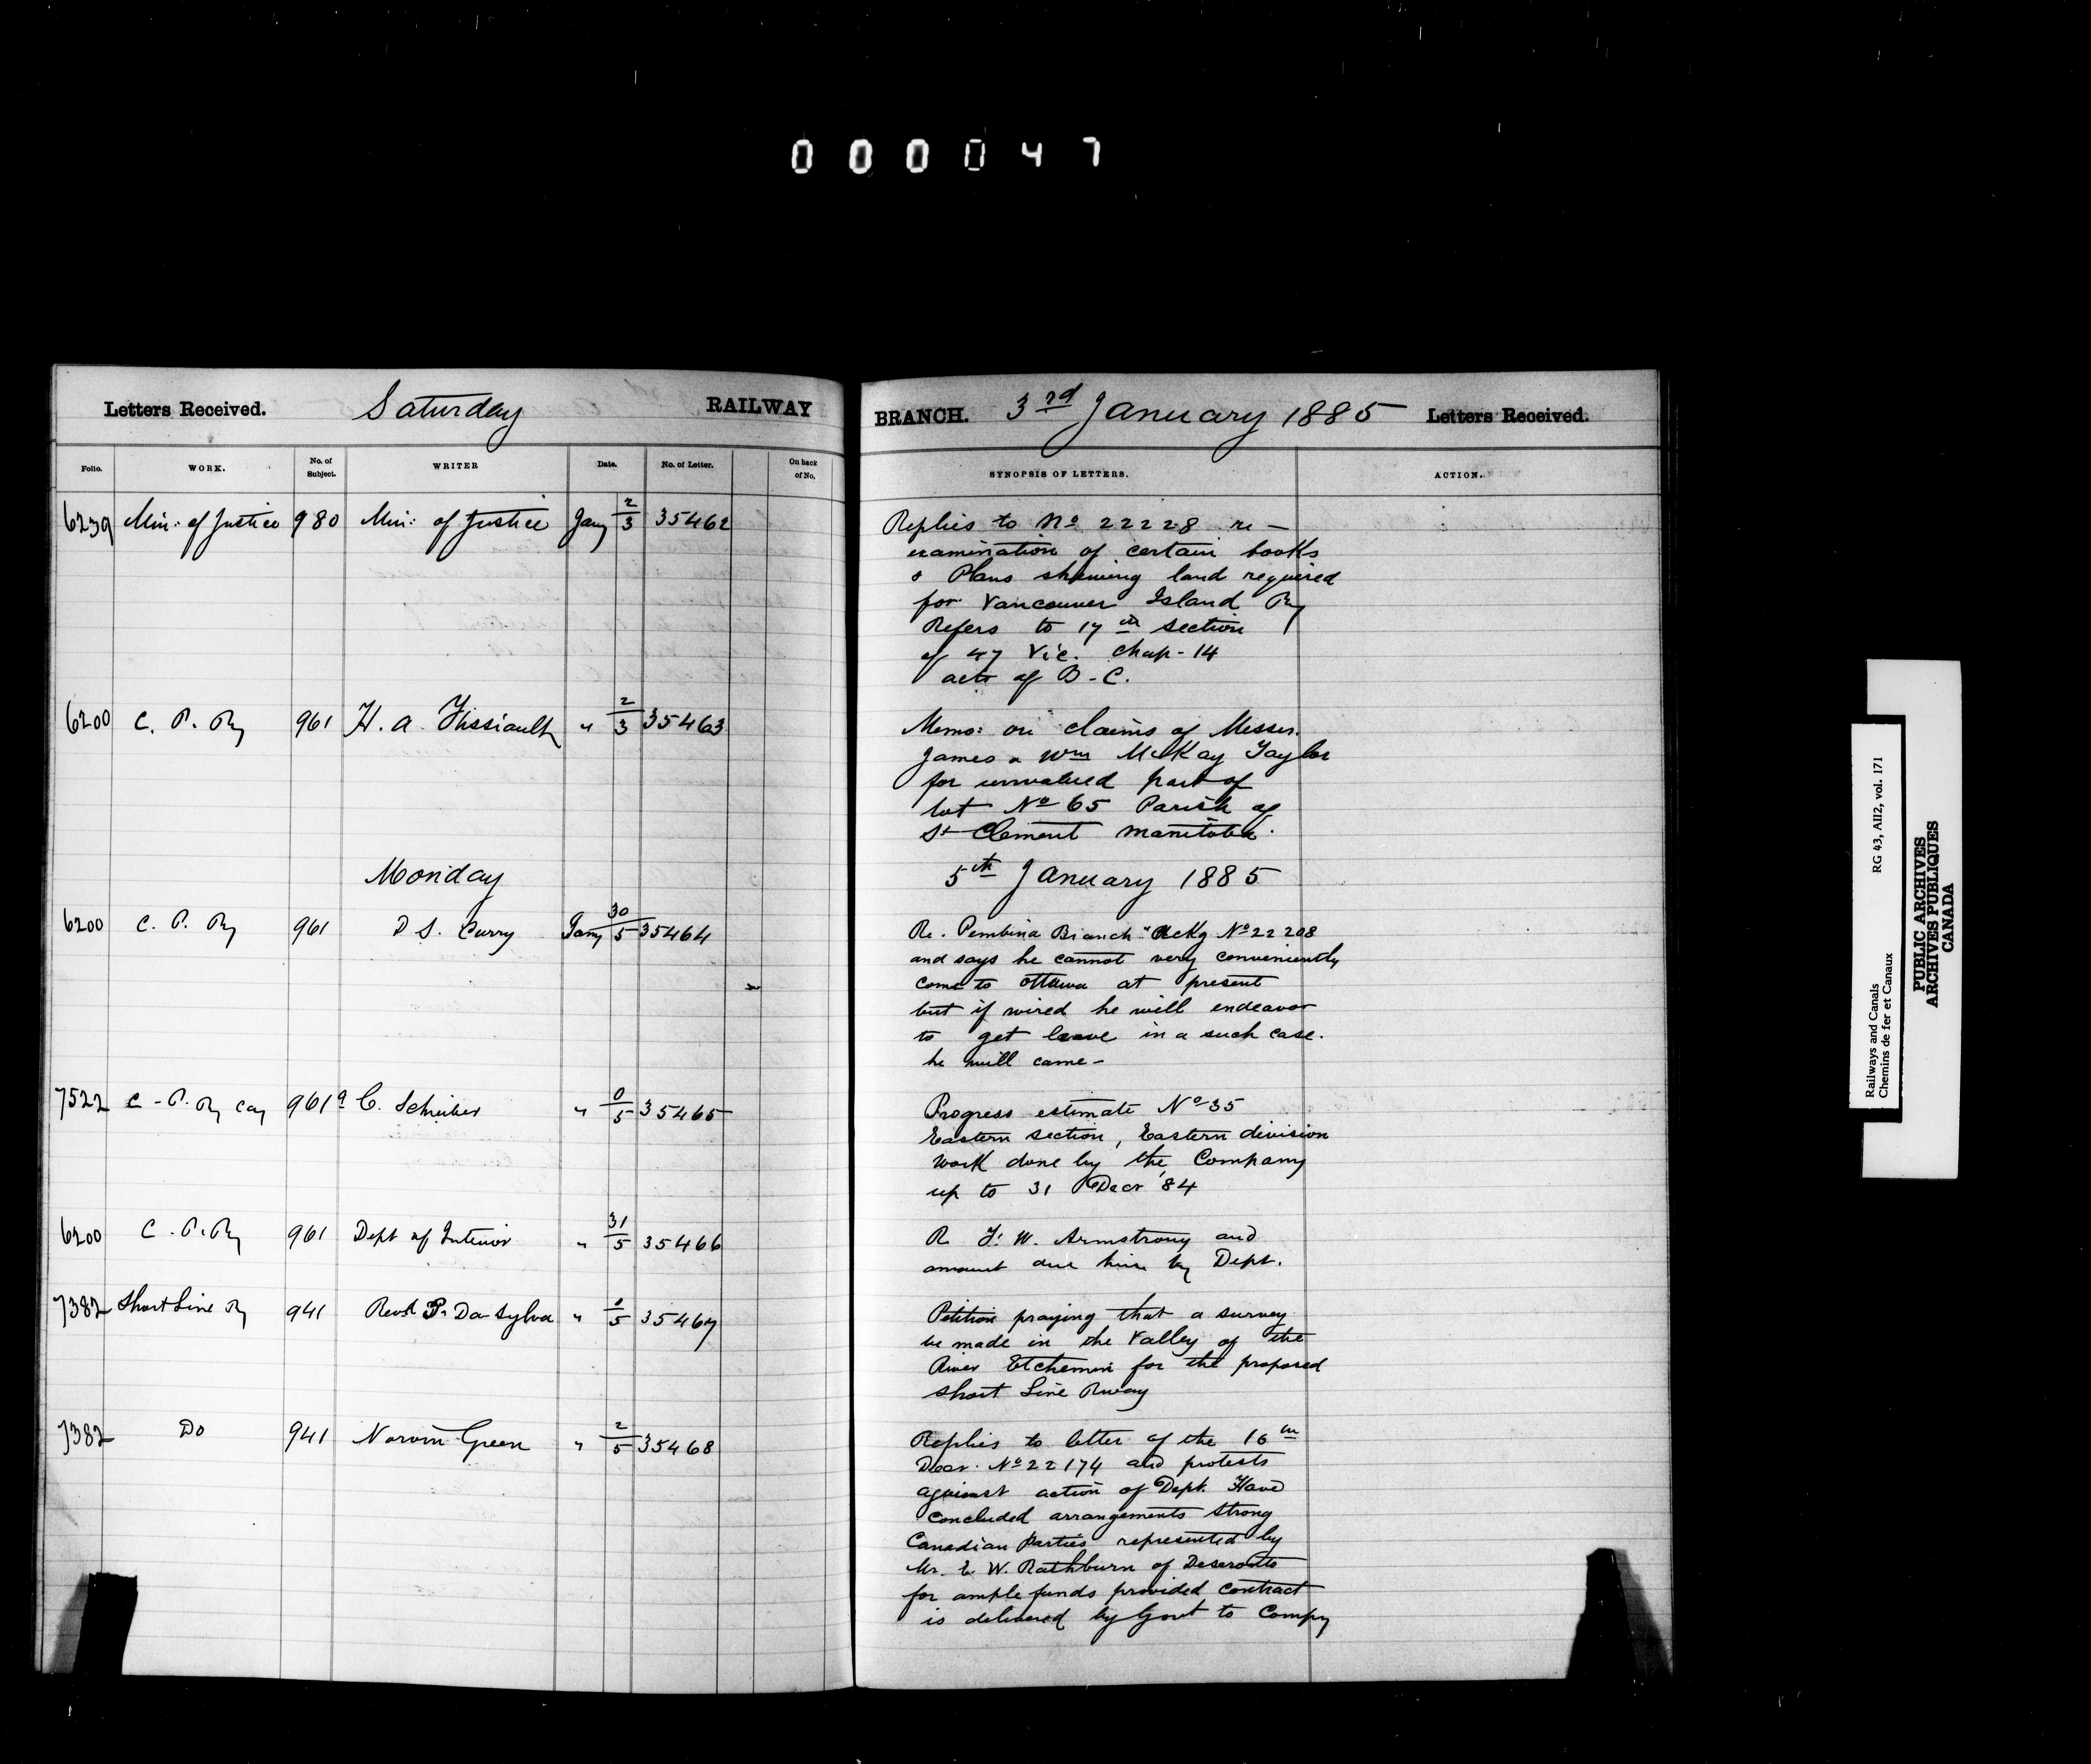 000047
Letters Received. Saturday RAILWAY BRANCH. 3rd January 1885 Letters Received.
Folio. WORK. No. of Subject. WRITER Date. No. of Letter. On back of No. SYNOPSIS OF LETTERS. ACTION.
6239 Min: of Justice 980 Min: of Justice Jany 2/3 35462
Replies to No 22228 re —
examination of certain books
& Plans shewing land required
for Vancouver Island Ry
Refers to 17th section
of 47 Vic. Chap-14
acts of B-C.
6200 C. P. Ry 961 H. A. Fissiault " 2/3 35463
Memo: on claims of Messrs.
James & Wm McKay Taylor
for unvalued part of
lot No 65 Parish of
St Clement Manitoba.
Monday 5th January 1885
6200 C. P. Ry 961 D S. Curry Jany 30/5 35464
Re. Pembina Branch "Ackg No 22208
and says he cannot very conveniently
come to Ottawa at present
but if wired he will endeavor
to get leave in a such case.
he will come -
7522 C - P. Ry Coy 961a C. Schreiber " 0/5 35465
Progress estimate No 35
Eastern section, Eastern division
work done by the Company
up to 31 Decr '84
6200 C. P. Ry 961 Dept of Interior " 31/5 35466
R. F. W. Armstrong and
amount due him by Dept.
7382 Short Line Ry 941 Revd P. Da-Sylva " /5 35467
Petition praying that a survey
be made in the Valley of the
River Etchemin for the proposed
Short Line Rway
7382 Do 941 Norvin Green " 2/5 35468
Replies to letter of the 16th
Decr. No 22174 and protests
against action of Dept. Have
concluded arrangements strong
Canadian Parties represented by
Mr. E. W. Rathburn of Deseronto
for ample funds provided contract
is delivered by Govt to Compy
Railways and Canals RG 43, AII2, vol. 171
Chemins de fer et Canaux
PUBLIC ARCHIVES
ARCHIVES PUBLIQUES
CANADA